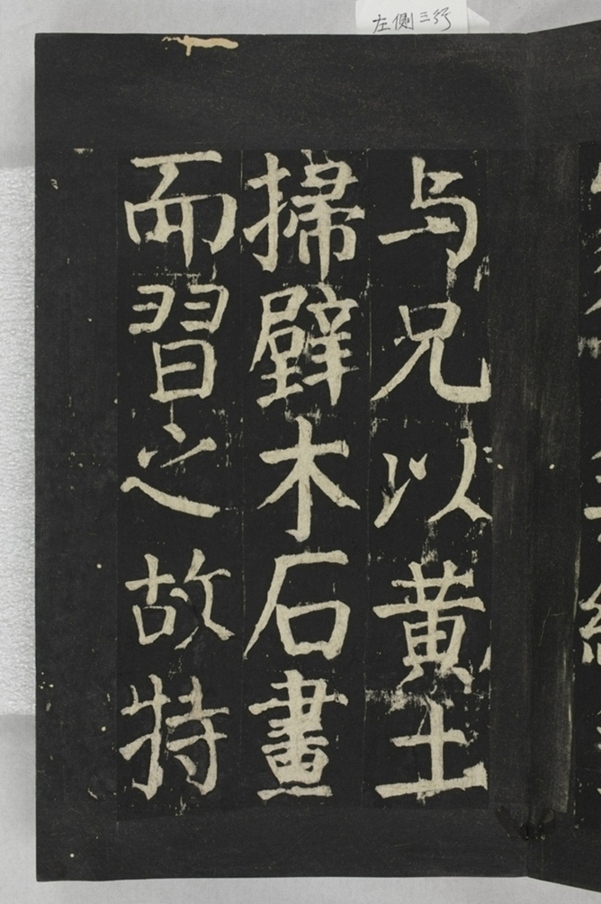 左側三行
与兄以黄土
掃壁木石畫
而習之故特